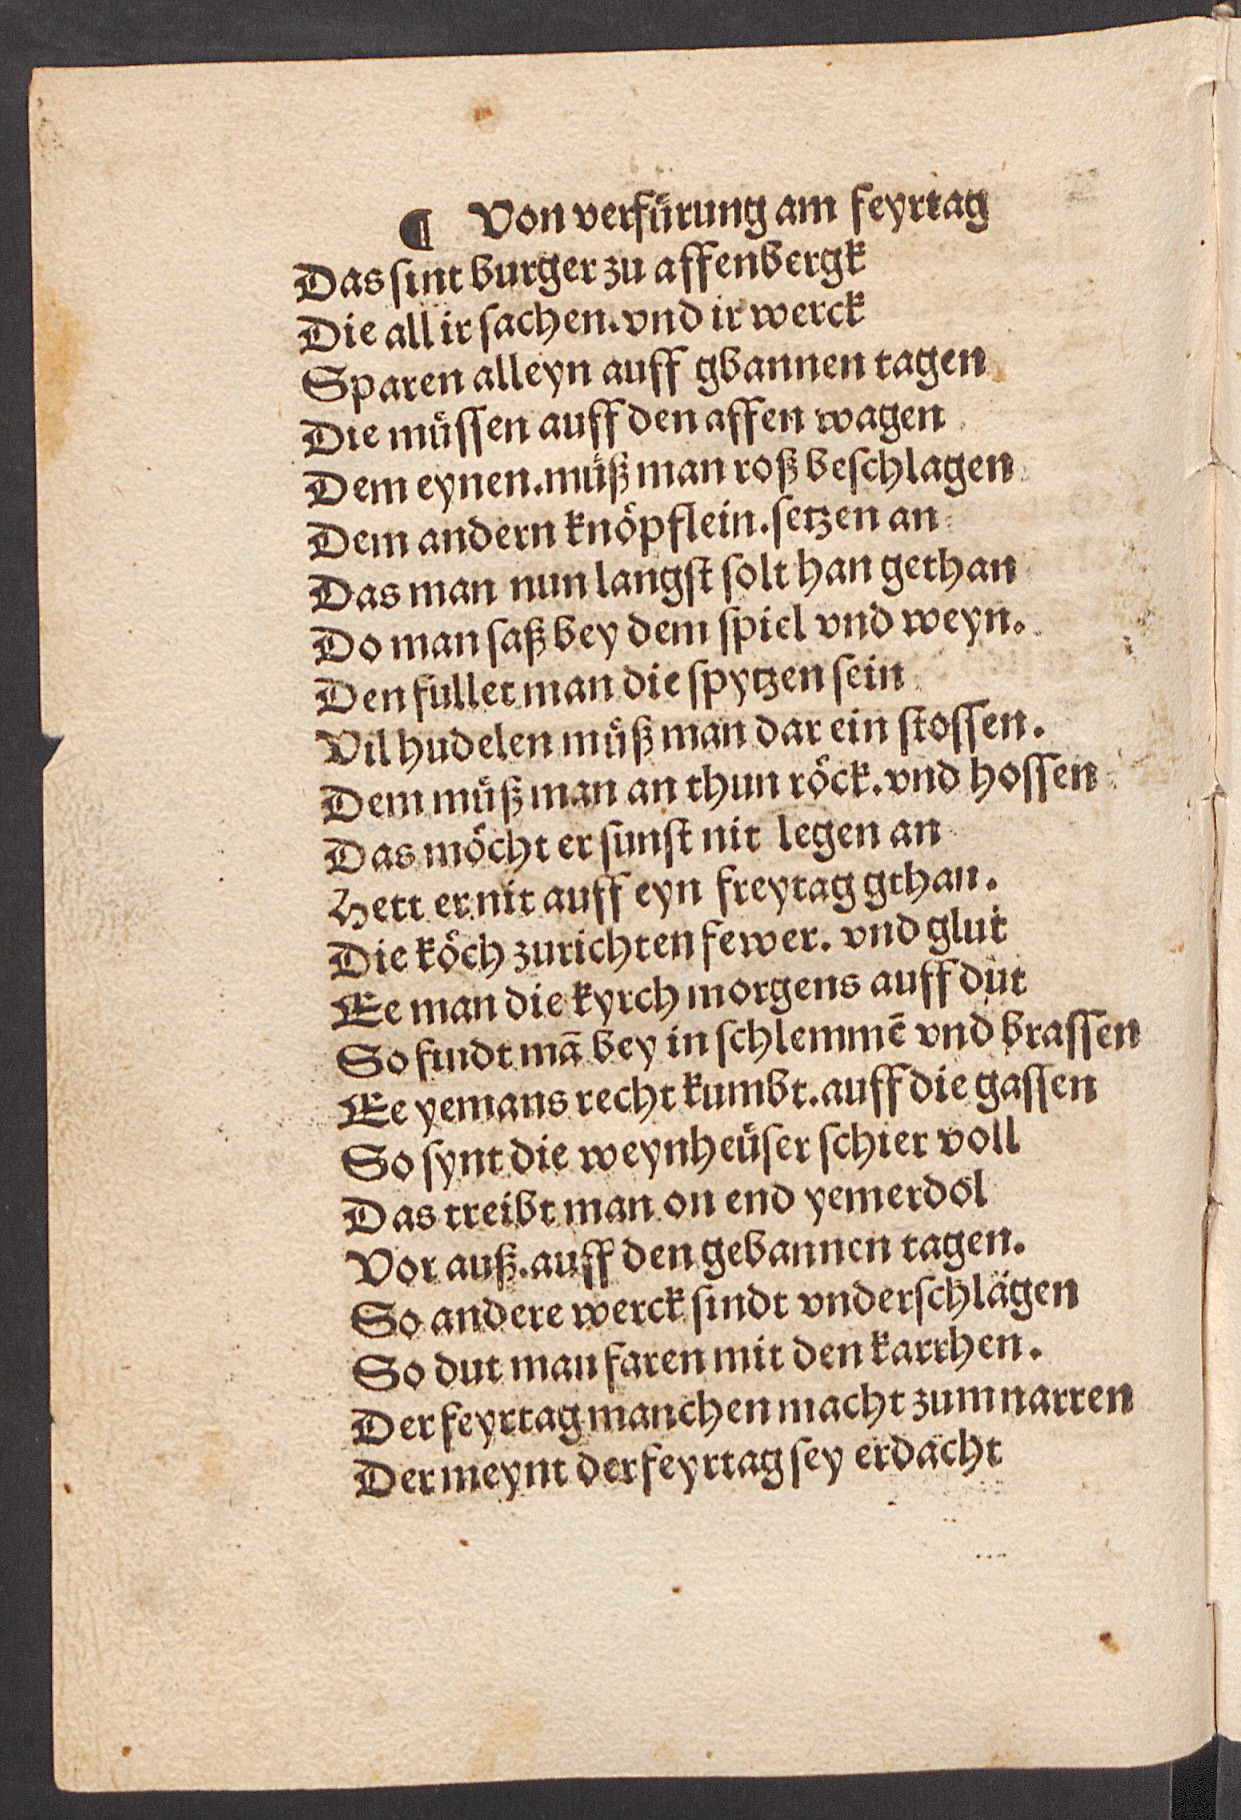 ¶ Von verfürung am feyrtag
Das sint burger zu affenbergk
Die all ir sachen. vnd ir werck
Sparen alleyn auff gbannen tagen
Die müssen auff den affen wagen
Dem eynen. müß man roß beschlagen
Dem andern knöpflein. setzen an
Das man nun langst solt han gethan
Do man saß bey dem spiel vnd weyn.
Den fullet man die spytzen sein
Vil hudelen müß man dar ein stossen.
Dem müß man an thun röck. vnd hossen
Das möcht er sunst nit legen an
Hett er nit auff eyn freytag gthan.
Die köch zurichten fewer. vnd glut
Ee man die kyrch morgens auff dut
So findt mā bey in schlemmē vnd brassen
Ee yemans recht kumbt. auff die gassen
So synt die weynheüser schier voll
Das treibt man on end yemerdol
Vor auß. auff den gebannen tagen.
So andere werck sindt vnderschlägen
So dut man faren mit den karrhen.
Der feyrtag manchen macht zum narren
Der meynt der feyrtag sey erdacht